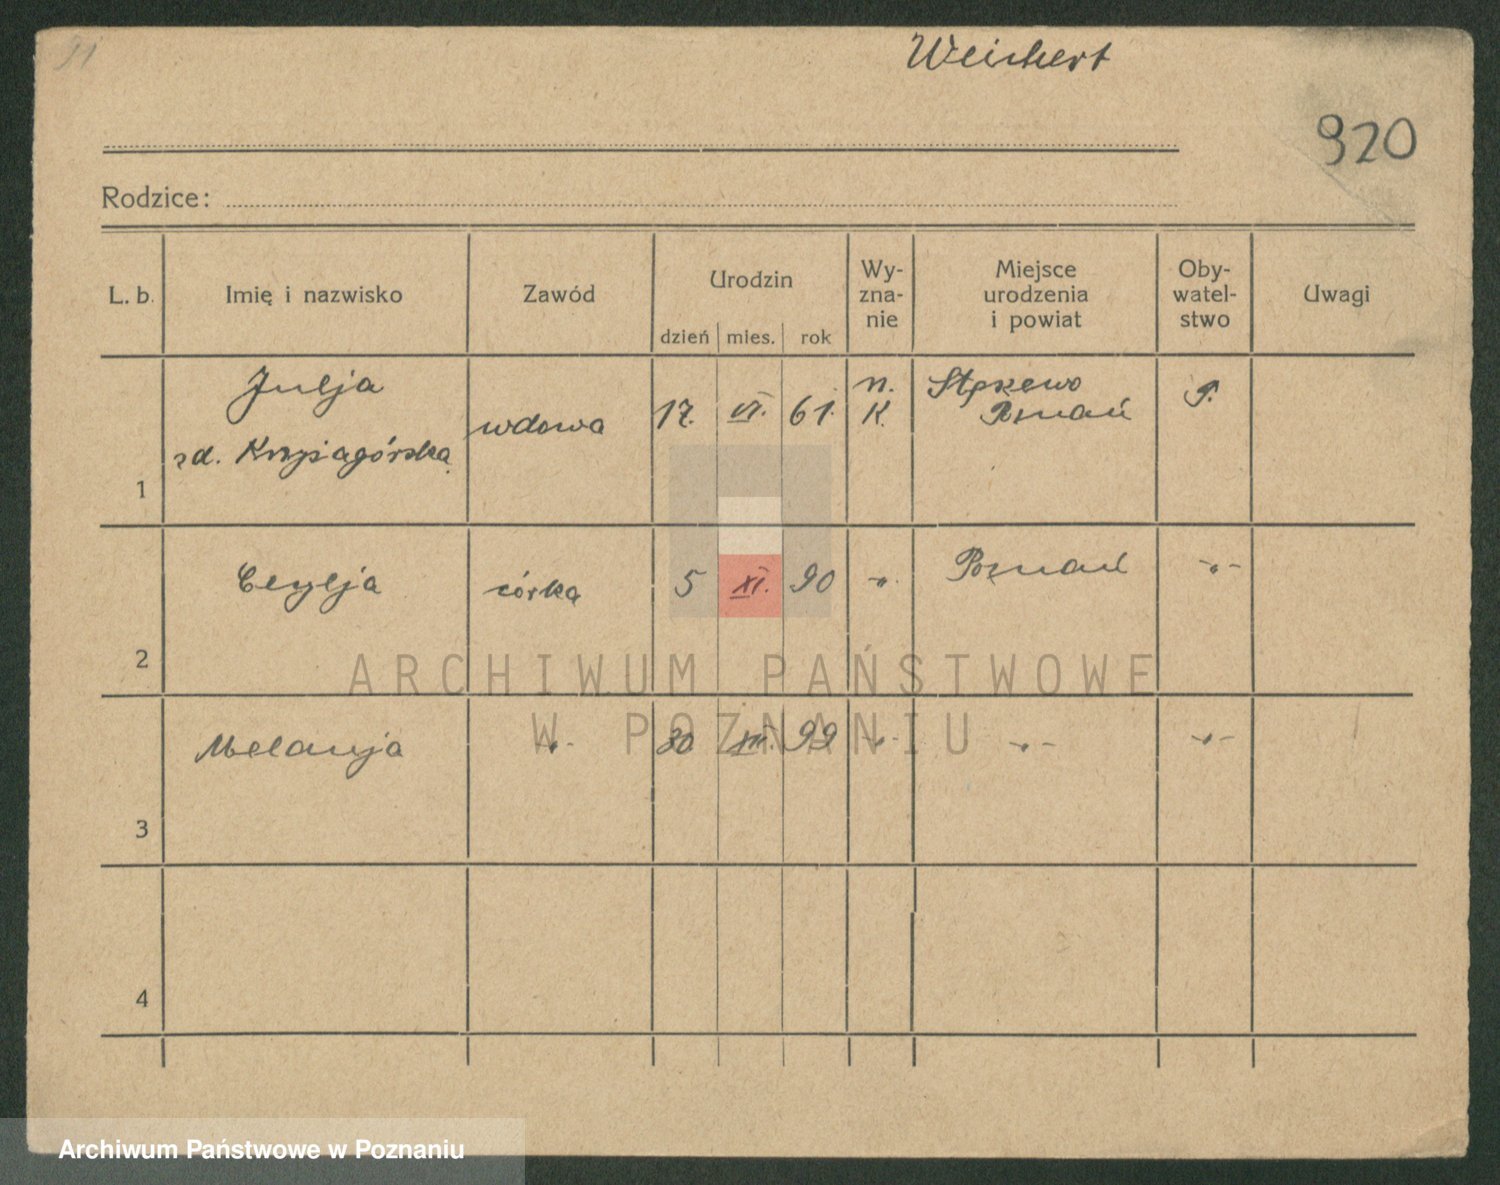 91
Weichert
920
Rodzice:
L. b.
Imię i nazwisko
Zawód
Urodzin
dzień
mies.
rok
Wy-
zna-
nie
Miejsce
urodzenia
i powiat
Oby-
watel-
stwo
Uwagi
1
Julja
zd.
wdowa
17.
VI.
61.
n.
K.
Poznań
P.
2
Cecylja
córka
5
XI.
90
-"-
Poznań
-"-
3
Melanja
-"-
30
XII.
99
-"-
-"-
-"-
4
ARCHIWUM PAŃSTWOWE
W POZNANIU
Archiwum Państwowe w Poznaniu